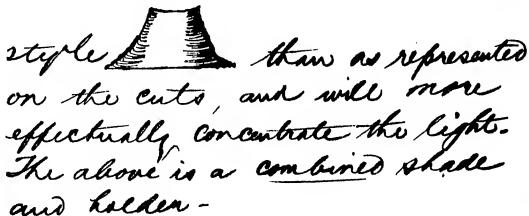 style than as represented
on the cuts, and will more
effectually concentrate the light.
The above is a combined shade
and holder -